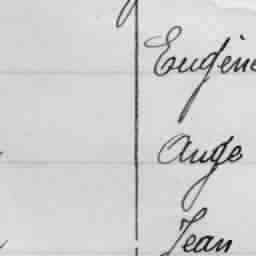 Eugène
Ange
Jean